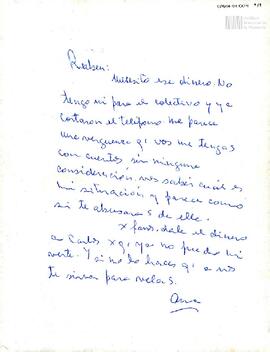 Ruben:
Necesito ese dinero. No
tengo ni para el colectivo y ya
cortaron el teléfono. me parece
una verguenza q' vos me tengas
con cuentos sin ninguna
consideración, vos sabés cuál es
mi situación y parece como
si te abusaras de ella.
x favor, dale el dinero
a Carlos xq' ya no puedo ni
verte. Y si no lo haces q' a vos
te sirvan para velas.
Ana